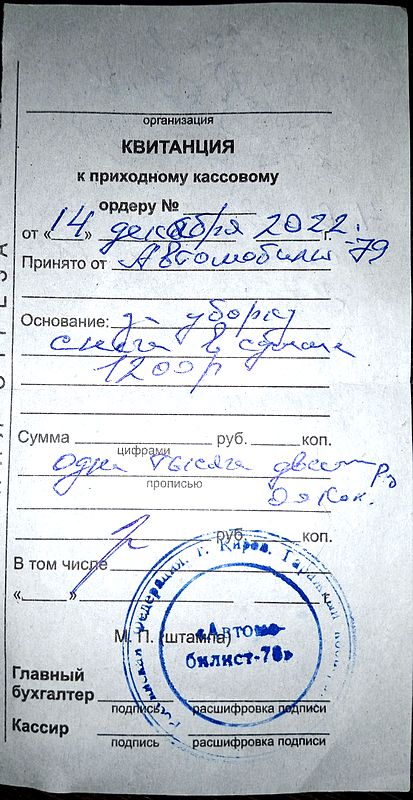 организация
КВИТАНЦИЯ
к приходному кассовому
ордеру №
от «14» декабря 2022 г.
Принято от Автомобилист-79
Основание: за уборку
снега в сумме
1200р
Сумма руб. коп.
цифрами
одна тысяча двести р
прописью
00 коп.
руб. коп.
В том числе
« »
М. П. (штампа)
Российская Федерация. г. Киров. Гаражный
«Автомо-
билист-78»
Главный
бухгалтер
подпись расшифровка подписи
Кассир
подпись расшифровка подписи